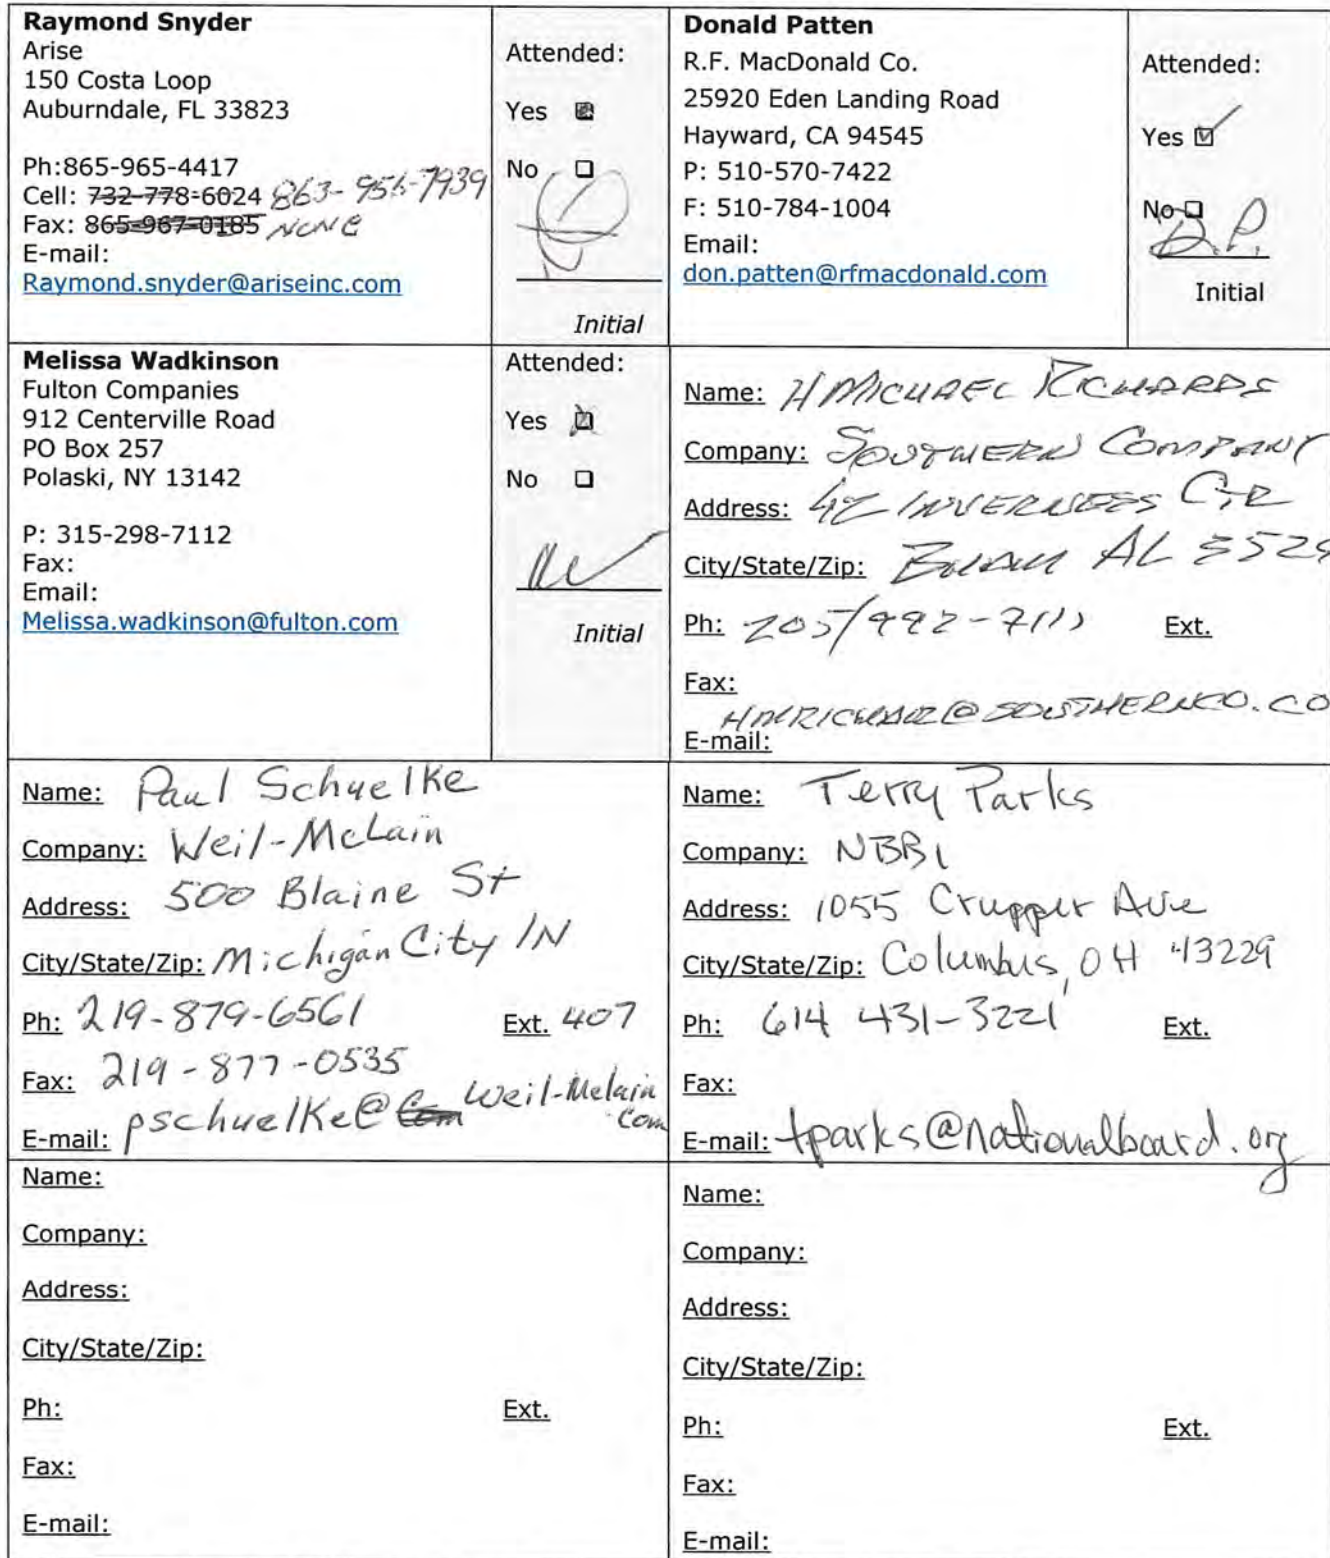 Raymond Snyder
Arise
150 Costa Loop
Auburndale, FL 33823
Ph:865-965-4417
Cell: 732-778-6024 863-956-7939
Fax: 865-967-0185 NONE
E-mail:
Raymond.snyder@ariseinc.com
Attended:
Yes
No
Initial
Donald Patten
R.F. MacDonald Co.
25920 Eden Landing Road
Hayward, CA 94545
P: 510-570-7422
F: 510-784-1004
Email:
don.patten@rfmacdonald.com
Attended:
Yes
No
D.P.
Initial
Melissa Wadkinson
Fulton Companies
912 Centerville Road
PO Box 257
Polaski, NY 13142
P: 315-298-7112
Fax:
Email:
Melissa.wadkinson@fulton.com
Attended:
Yes
No
Initial
Name: H MICHAEL RICHARDS
Company: SOUTHERN COMPANY
Address: 42 INVERNESS CTR
City/State/Zip: AL 3524
Ph: 205/992-7111 Ext.
Fax:
E-mail:
Name: Paul Schuelke
Company: Weil-McLain
Address: 500 Blaine St
City/State/Zip: Michigan City IN
Ph: 219-879-6561 Ext. 407
Fax: 219-877-0535
E-mail: pschuelke@ com Weil-Mclain
com
Name: Terry Parks
Company: NBBI
Address: 1055 Crupper Ave
City/State/Zip: Columbus, OH 43229
Ph: 614 431-3221 Ext.
Fax:
E-mail: tparks@nationalboard.org
Name:
Company:
Address:
City/State/Zip:
Ph: Ext.
Fax:
E-mail:
Name:
Company:
Address:
City/State/Zip:
Ph: Ext.
Fax:
E-mail: